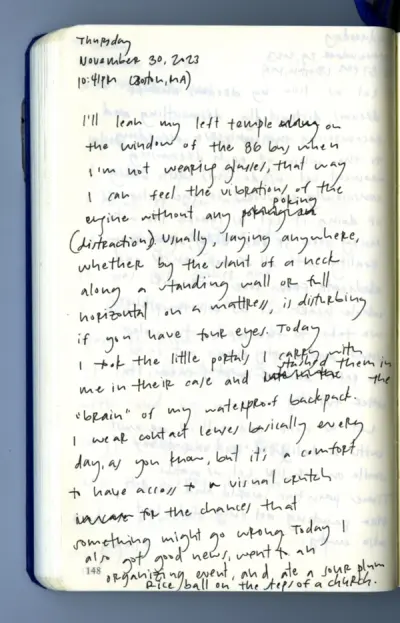 Thursday
November 30, 2023
10:41pm (Boston, MA)
I'll lean my left temple on
the window of the 86 bus when
I'm not wearing glasses, that way
I can feel the vibrations of the
engine without any poking
(distraction). Usually, laying anywhere,
whether by the slant of a neck
along a standing wall or full
horizontal on a mattress, is disturbing
if you have four eyes. Today
I took the little portals I carry with
me in their case and stashed them in
the
"brain" of my waterproof backpack.
I wear contact lenses basically every
day, as you know, but it's a comfort
to have access to a visual crutch
for the chances that
something might go wrong. Today I
also got good news, went to an
organizing event, and ate a sour plum
rice ball on the steps of a church.
148